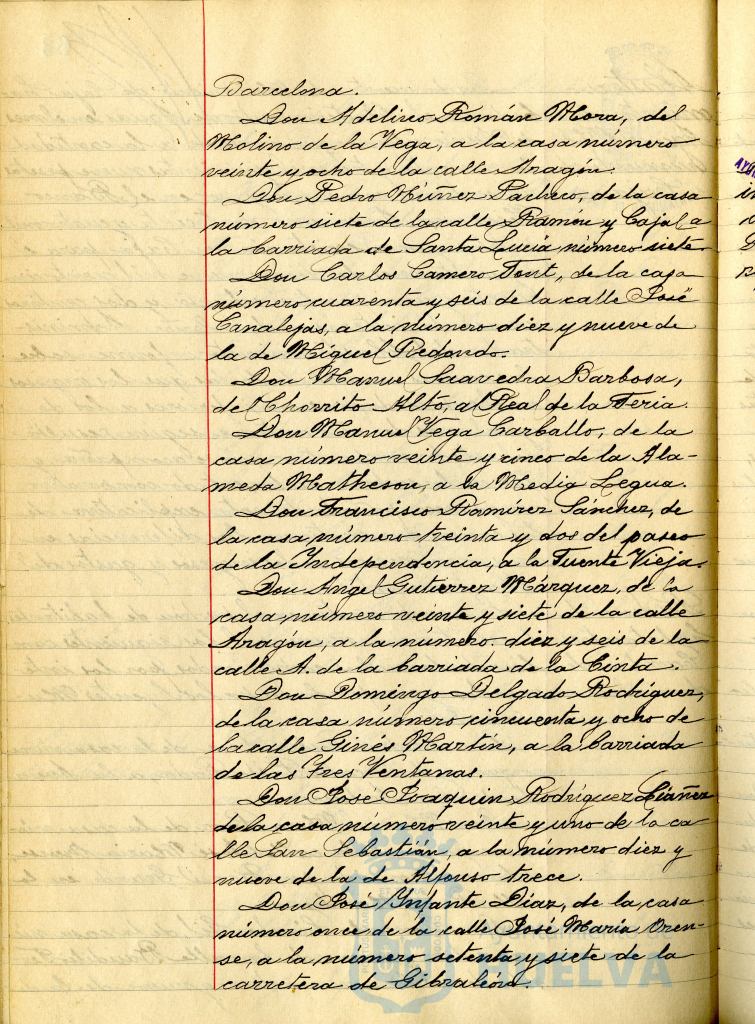 Barcelona.
Don Adelino Román Mora, del
Molino de la Vega, a la casa número
veinte y ocho de la calle Aragón.
Don Pedro Núñez Pacheco, de la casa
número siete de la calle Ramón y Cajal, a
la barriada de Santa Lucía número siete.
Don Carlos Camero Font, de la casa
número cuarenta y seis de la calle José
Canalejas, a la número diez y nueve de
la de Miguel Redondo.
Don Manuel Saavedra Barbosa,
del Chorrito Alto, al Real de la Feria.
Don Manuel Vega Carballo, de la
casa número veinte y cinco de la Ala-
meda Matheson, a la Media Legua.
Don Francisco Ramírez Sánchez, de
la casa número treinta y dos del paseo
de la Independencia, a la Fuente Vieja.
Don Angel Gutierrez Márquez, de la
casa número veinte y siete de la calle
Aragón, a la número diez y seis de la
calle A. de la barriada de la Cinta.
Don Domingo Delgado Rodríguez,
de la casa número cincuenta y ocho de
la calle Ginés Martín, a la barriada
de las Tres Ventanas.
Don José Joaquin Rodríguez Liáñez
de la casa número veinte y uno de la ca-
lle San Sebastián, a la número diez y
nueve de la de Alfonso trece.
Don José Infante Díaz, de la casa
número once de la calle José María Oren-
se, a la número setenta y siete de la
carretera de Gibraleón.
HUELVA